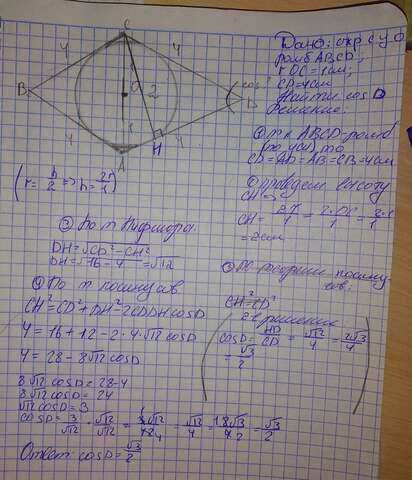 C
4
4
B
O
2
cos
D
1
4
H
4
A
Дано: окр с ц. O
ромб ABCD;
r OC = 1см;
CD = 4см
Найти: cos D
Решение:
① т.к ABCD - ромб
(по усл), то
CD = AD = AB = CB = 4см
(r = h/2 => h = 2r/1)
② проведём высоту
CH =>
CH = 2r/1 = 2·OC/1 = 2·1/1
= 2см
③ По т Пифагора
DH = √CD² - CH²
DH = √16 - 4 = √12
④ По т косинусов
CH² = CD² + DH² - 2CD DH cos D
4 = 16 + 12 - 2·4·√12 cos D
4 = 28 - 8√12 cos D
8√12 cos D = 28 - 4
8√12 cos D = 24
√12 cos D = 3
cos D = 3/√12 · √12/√12 = 3√12/12 = √12/4 = 2√3/4 = √3/2
Ответ: cos D = √3/2
теореме косину
сов:
CH² = CD²
2 решение
cos D = HD/CD = √12/4 = 2√3/4
= √3/2